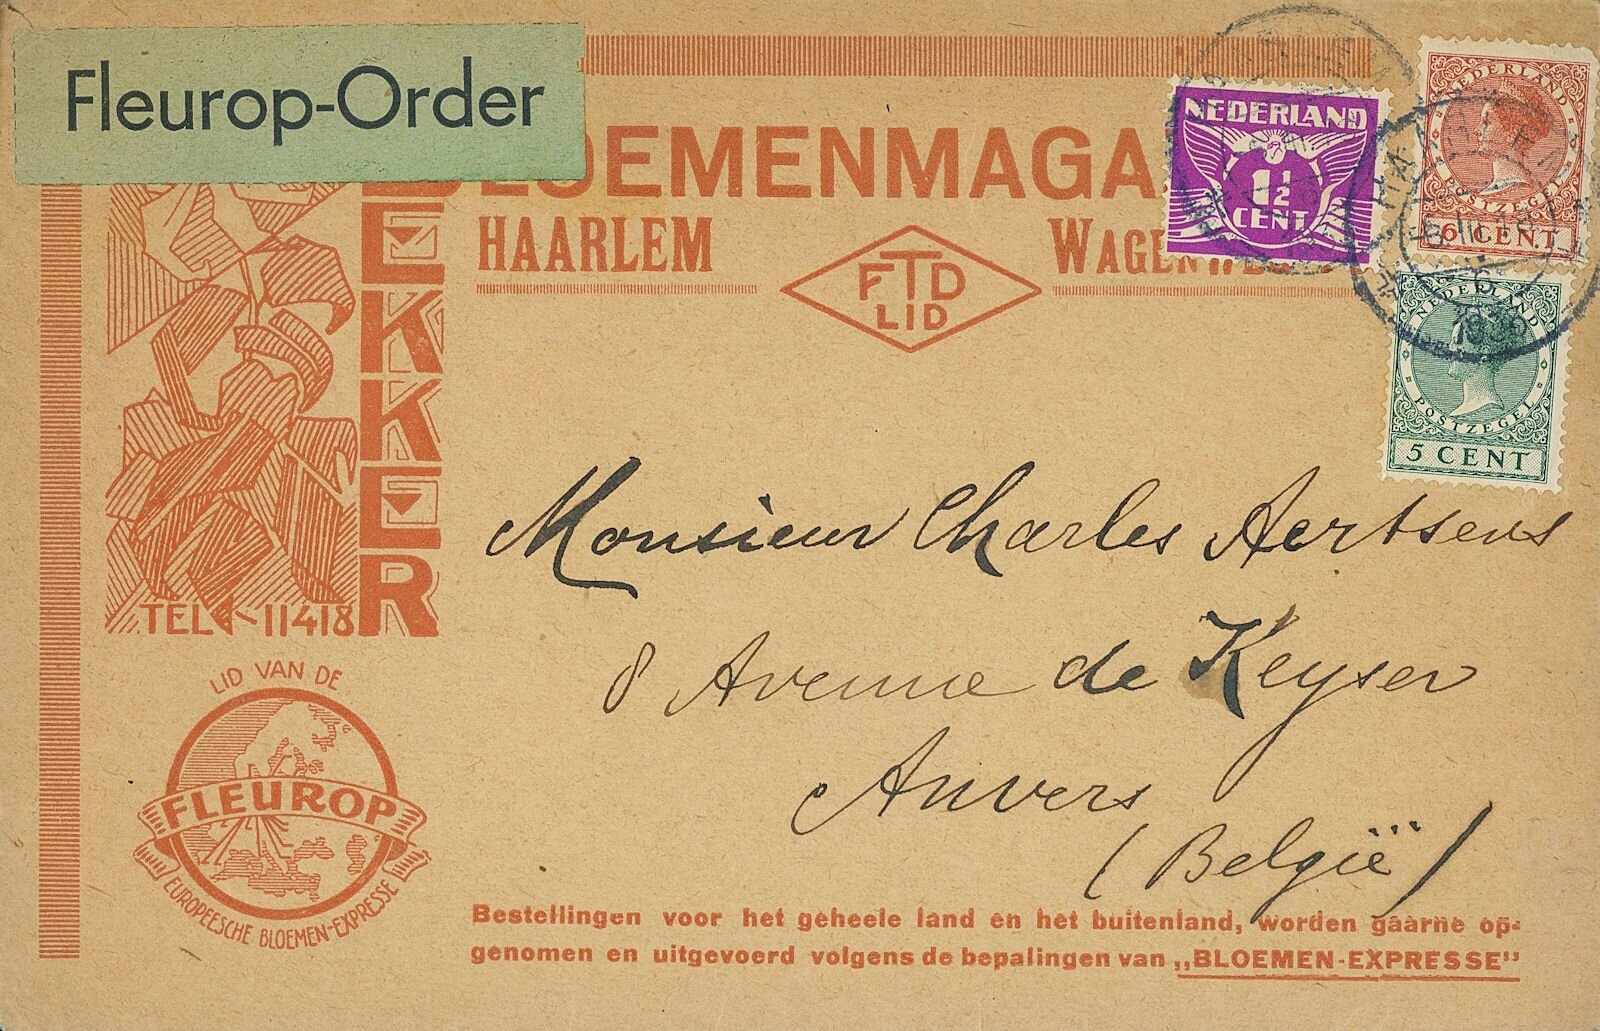 Fleurop-Order
BLOEMENMAGA
HAARLEM
FTD
LID
BEKKER
TEL 11418
LID VAN DE
FLEUROP
EUROPEESCHE BLOEMEN-EXPRESSE
NEDERLAND
1½
CENT
NEDERLAND
POSTZEGEL
6 CENT
NEDERLAND
POSTZEGEL
5 CENT
1936
Monsieur Charles Aertsens
8 Avenue de Keyser
Anvers
(België)
Bestellingen voor het geheele land en het buitenland, worden gaarne op-
genomen en uitgevoerd volgens de bepalingen van „BLOEMEN-EXPRESSE"